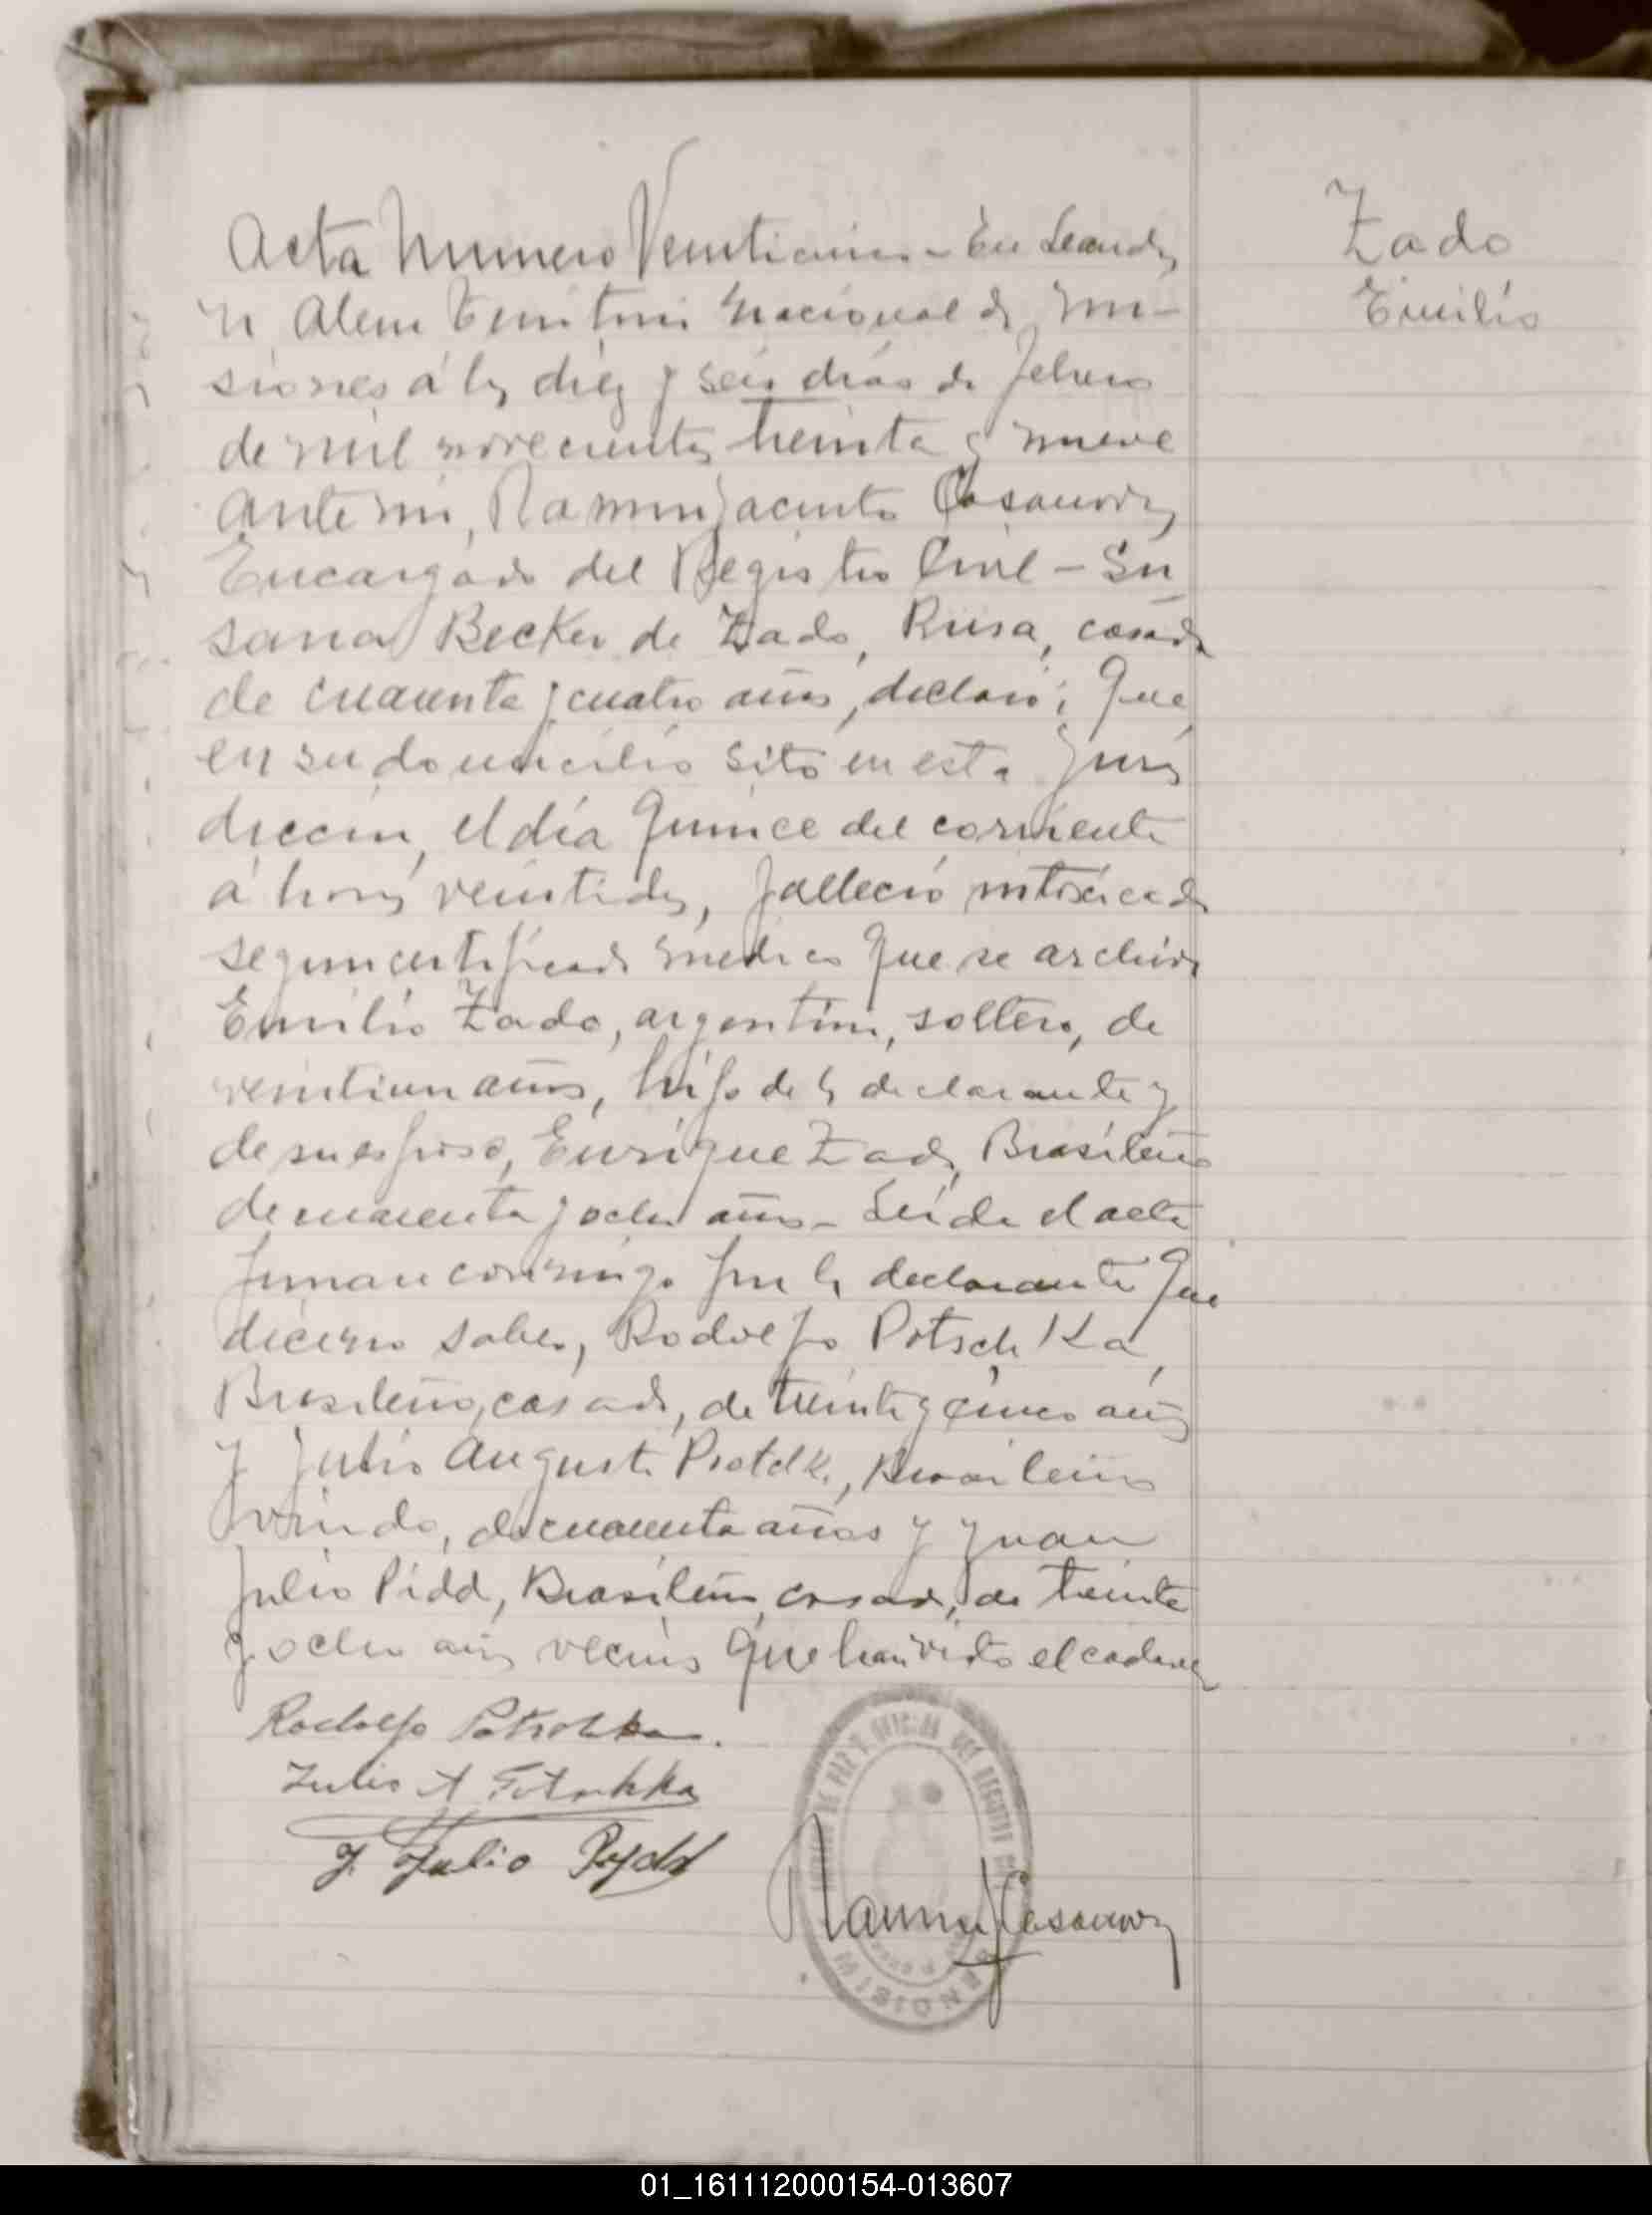 Acta Numero Veinticinco - En Leandro
N Alem Territorio Nacional de Mi-
siones á los diez y seis dias de Febrero
de mil novecientos treinta y nueve
ante mi, Ramon Jacinto Casanova,
Encargado del Registro Civil - Su
sana Becker de Zado, Rusa, casada
de cuarenta y cuatro años, declaró; Que
en su domicilio sito en esta juris
diccion, el día quince del corriente
á horas veintidos, falleció intoxicado
segun certificado medico que se archiva
Emilio Zado, argentino, soltero, de
veintiun años, hijo de la declarante y
de su esposo, Enrique Zado, Brasileño
de cuarenta y ocho años - Leída el acta
firman conmigo por la declarante que
dice no saber, Rodolfo Potschka,
Brasileño, casado, de treinta y cinco años
y Julio Augusto, Brasileño
viudo, de cuarenta años y Juan
Julio Pidd, Brasileño, casado, de treinta
y ocho años vecinos que han visto el cadaver
Rodolfo Potschka.
Julio A Potschka
J. Julio Pydd
Ramon J Casanova
DE PAZ Y OFICIAL DEL REGISTRO
MISIONES
Zado
Emilio
01_161112000154-013607